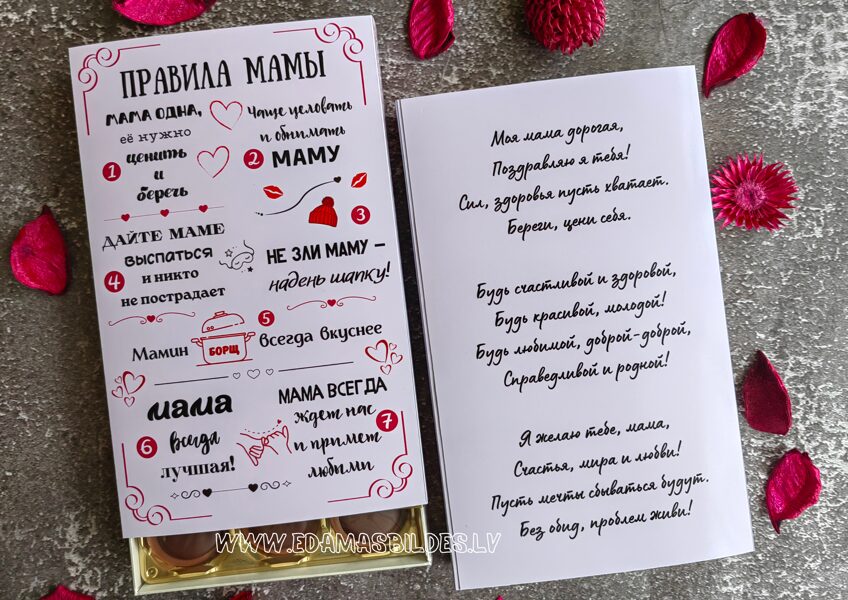 ПРАВИЛА МАМЫ
МАМА ОДНА,
её нужно
1 ценить
и
беречь
Чаще целовать
и обнимать
2 МАМУ
3
НЕ ЗЛИ МАМУ –
надень шапку!
ДАЙТЕ МАМЕ
ВЫСПАТЬСЯ
4 и никто
не пострадает
5
Мамин БОРЩ всегда вкуснее
мама
6 всегда
лучшая!
МАМА ВСЕГДА
ждет нас 7
и примет
любыми
Моя мама дорогая,
Поздравляю я тебя!
Сил, здоровья пусть хватает.
Береги, цени себя.
Будь счастливой и здоровой,
Будь красивой, молодой!
Будь любимой, доброй-доброй,
Справедливой и родной!
Я желаю тебе, мама,
Счастья, мира и любви!
Пусть мечты сбываться будут.
Без обид, проблем живи!
WWW.EDAMASBILDES.LV